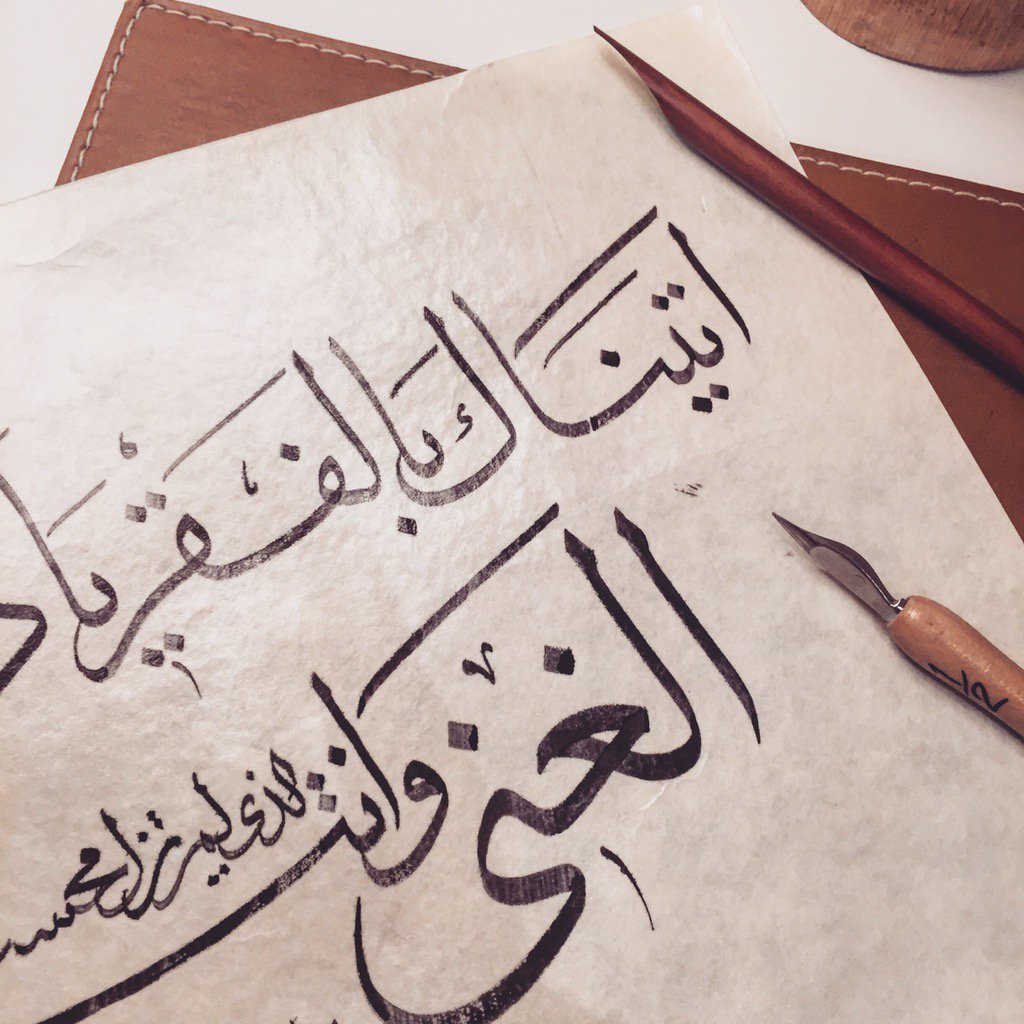 اتيناك بالفقر يا ذ
الغنى وانت
الذي لم تزل محس